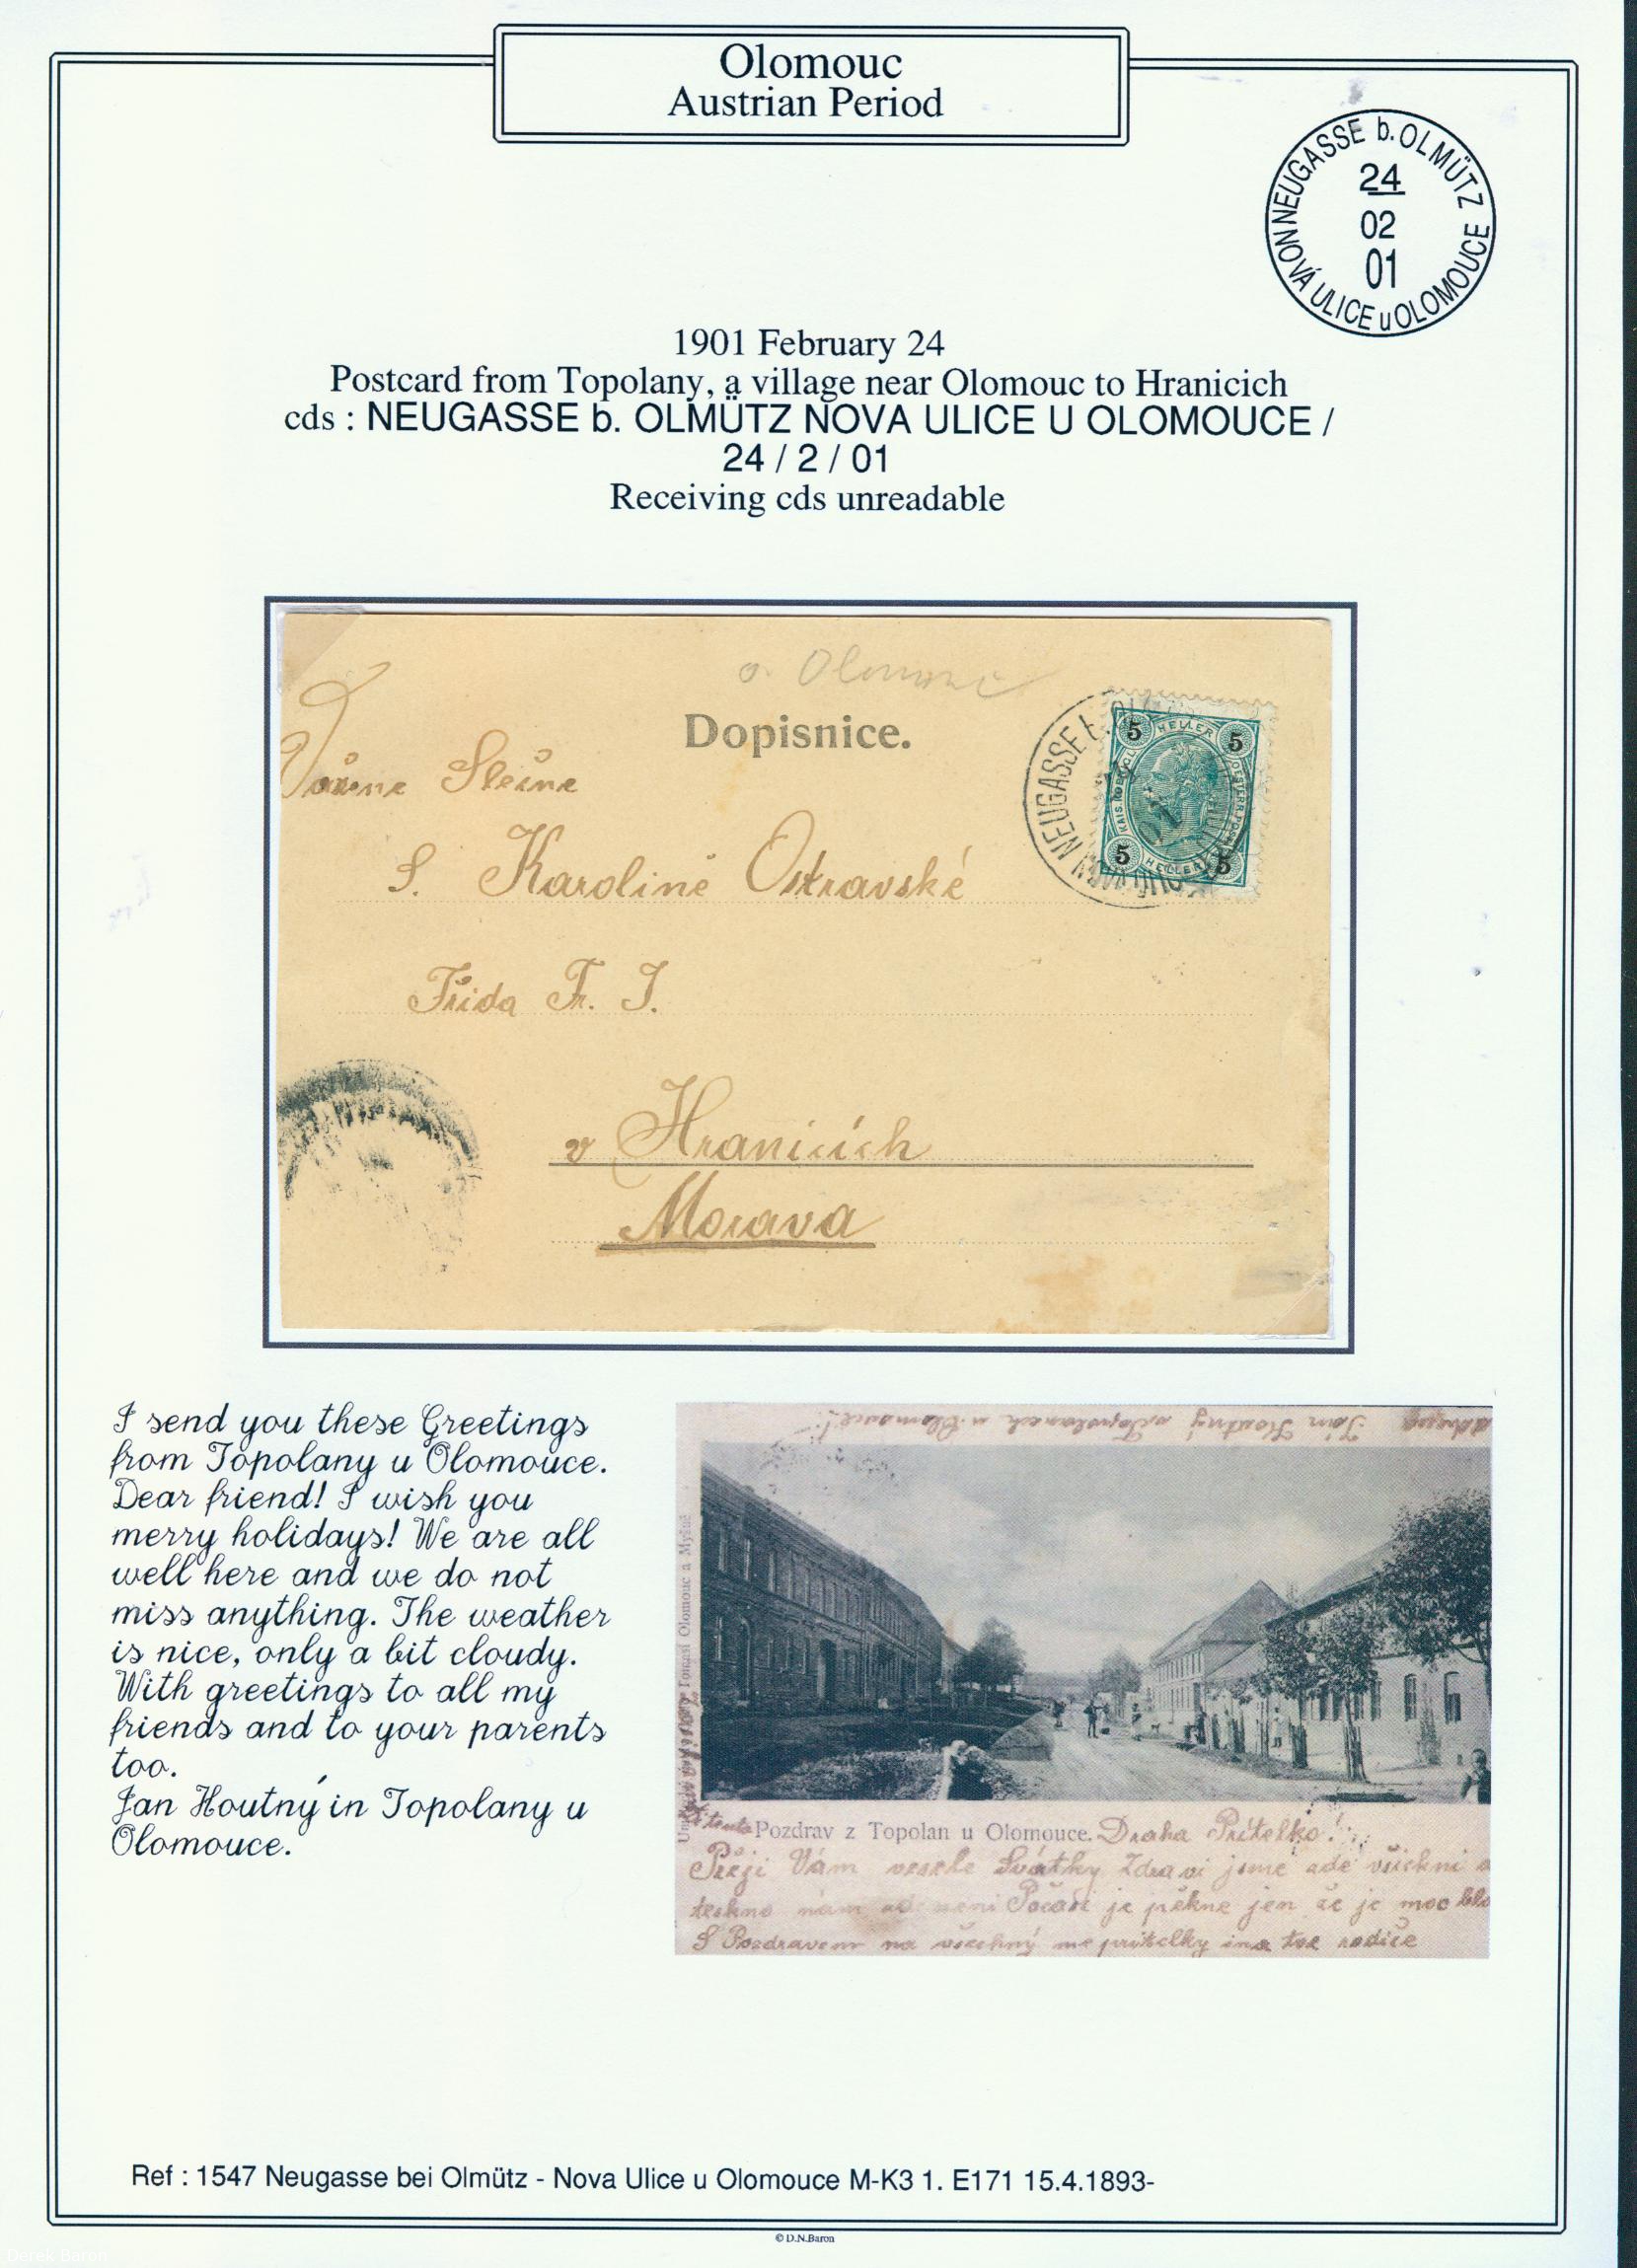 Olomouc
Austrian Period
NEUGASSE b. OLMÜTZ
24
02
01
NOVÁ ULICE u OLOMOUCE
1901 February 24
Postcard from Topolany, a village near Olomouc to Hranicich
cds : NEUGASSE b. OLMÜTZ NOVA ULICE U OLOMOUCE /
24 / 2 / 01
Receiving cds unreadable
Olomouc
Dopisnice.
NEUGASSE b.
5 HELLER 5
5 HELLER 5
Slečně
S. Karolině Ostravské
Třída Fr. I.
v Hranicích
Morava
I send you these Greetings
from Topolany u Olomouce.
Dear friend! I wish you
merry holidays! We are all
well here and we do not
miss anything. The weather
is nice, only a bit cloudy.
With greetings to all my
friends and to your parents
too.
Jan Houtný in Topolany u
Olomouce.
Jan Houtný v Topolanech u Olomouce!
Pozdrav z Topolan u Olomouce. Draha Přítelko!
Přeji Vám veselé Svátky Zdraví jsme všichni
teskno nám není Počasí je pěkne jen že je moc
S Pozdravem na všechny mé přítelky rodiče
Ref : 1547 Neugasse bei Olmütz - Nova Ulice u Olomouce M-K3 1. E171 15.4.1893-
© D.N.Baron
Derek Baron